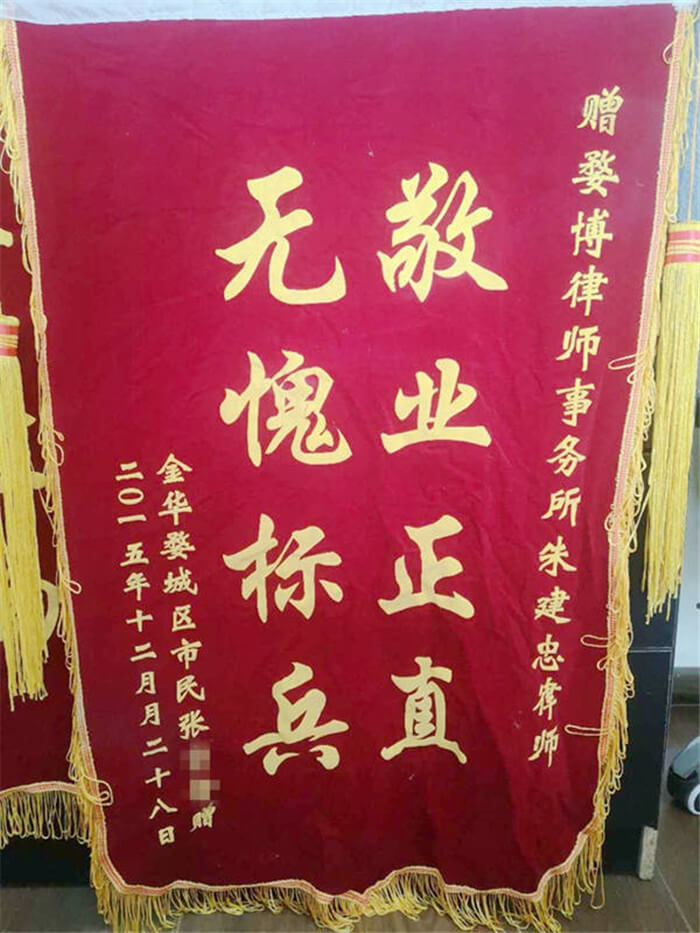 赠婺博律师事务所朱建忠律师
敬业正直
无愧标兵
金华婺城区市民张赠
二〇一五年十二月月二十八日